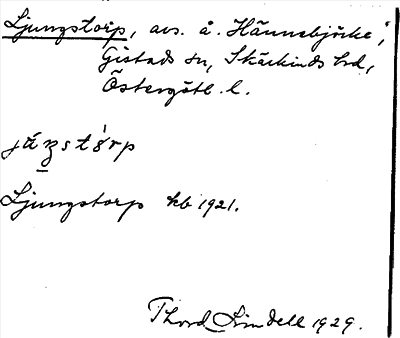 Ljungstorp, avs. å. Hännebjörke,
Gistads sn, Skärkinds hd,
Östergötl. l.
Ljungstorp kb 1921.
Thord Lindell 1929.